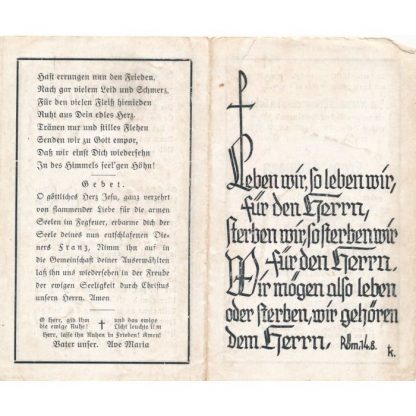 Hast errungen nun den Frieden,
Nach gar vielem Leid und Schmerz,
Für den vielen Fleiß hienieden
Ruht aus Dein edles Herz.
Tränen nur und stilles Flehen
Senden wir zu Gott empor,
Daß wir einst Dich wiedersehn
In des Himmels seel'gen Höhn!
Gebet.
O göttliches Herz Jesu, ganz verzehrt
von flammender Liebe für die armen
Seelen in Fegfeuer, erbarme dich der
Seele deines nun entschlafenen Die-
ners Franz, Nimm ihn auf in
die Gemeinschaft deiner Auserwählten
laß ihn uns wiedersehen in der Freude
der ewigen Seligkeit durch Christus
unsern Herrn. Amen
O Herr, gib ihm und das ewige
die ewige Ruhe! Licht leuchte ihm
Herr, lasse ihn ruhen in Frieden! Amen!
Vater unser. Ave Maria
Leben wir, so leben wir,
für den Herrn,
sterben wir, so sterben wir
für den Herrn.
Wir mögen also leben
oder sterben, wir gehören
dem Herrn. Röm. 14.8.
k.